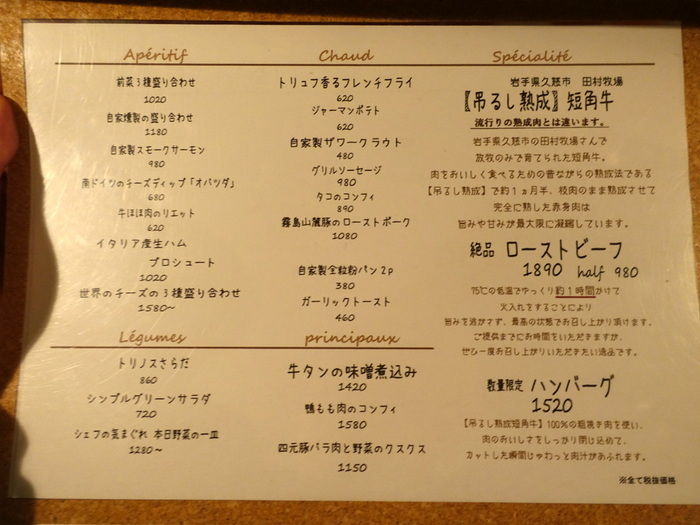 Apéritif
前菜3種盛り合わせ
1020
自家燻製の盛り合わせ
1180
自家製スモークサーモン
980
南ドイツのチーズディップ「オバツダ」
680
牛ほほ肉のリエット
620
イタリア産生ハム
プロシュート
1020
世界のチーズの3種盛り合わせ
1580~
Légumes
トリノスさらだ
860
シンプルグリーンサラダ
720
シェフの気まぐれ 本日野菜の一皿
1280~
Chaud
トリュフ香るフレンチフライ
620
ジャーマンポテト
620
自家製ザワークラウト
480
グリルソーセージ
980
タコのコンフィ
890
霧島山麓豚のローストポーク
1080
自家製全粒粉パン2p
380
ガーリックトースト
460
principaux
牛タンの味噌煮込み
1420
鴨もも肉のコンフィ
1580
四元豚バラ肉と野菜のクスクス
1150
Spécialité
岩手県久慈市 田村牧場
【吊るし熟成】短角牛
流行りの熟成肉とは違います。
岩手県久慈市の田村牧場さんで
放牧のみで育てられた短角牛。
肉をおいしく食べるための昔ながらの熟成法である
【吊るし熟成】で約1ヵ月半、枝肉のまま熟成させて
完全に熟した赤身肉は
旨みや甘みが最大限に凝縮しています。
絶品 ローストビーフ
1890 half 980
75℃の低温でゆっくり約1時間かけて
火入れをすることにより
旨みを逃がさず、最高の状態でお召し上がり頂けます。
ご提供までにお時間をいただきますが、
ぜひ一度お召し上がりいただきたい逸品です。
数量限定 ハンバーグ
1520
【吊るし熟成短角牛】100%の粗挽き肉を使い、
肉のおいしさをしっかり閉じ込めて、
カットした瞬間じゅわっと肉汁があふれます。
※全て税抜価格